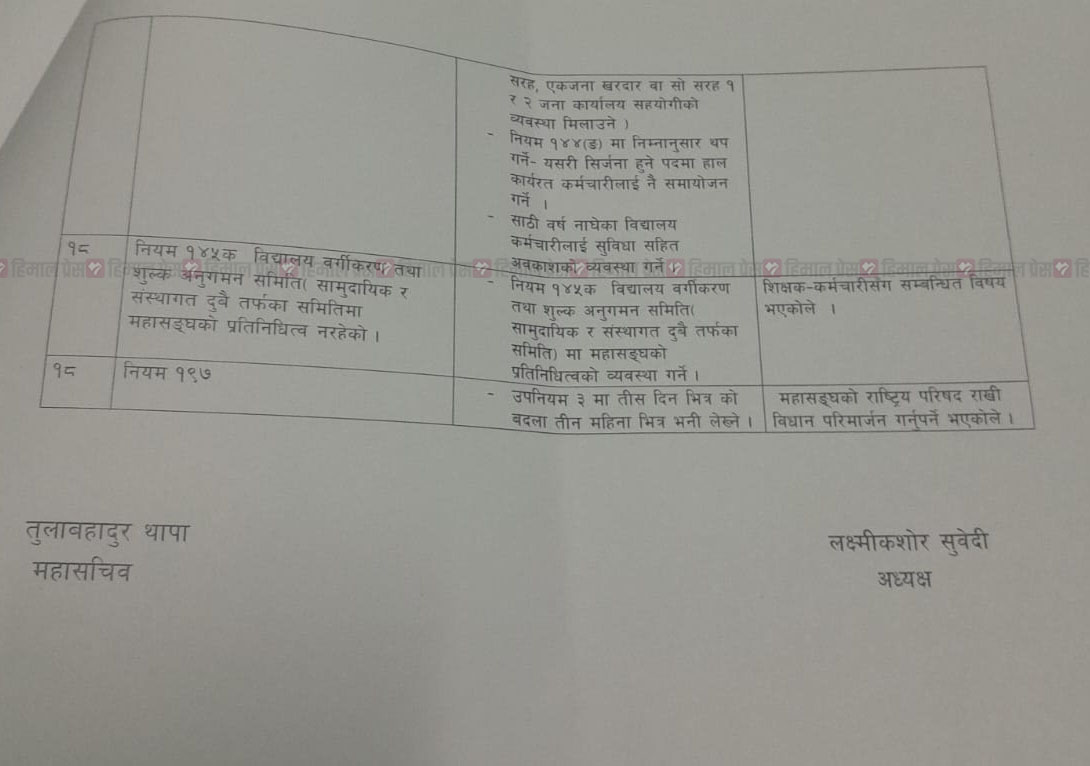 सरह, एकजना खरदार वा सो सरह १
र २ जना कार्यालय सहयोगीको
व्यवस्था मिलाउने )
- नियम १४४(ङ) मा निम्नानुसार थप
गर्ने- यसरी सिर्जना हुने पदमा हाल
कार्यरत कर्मचारीलाई नै समायोजन
गर्ने ।
- साठी वर्ष नाघेका विद्यालय
कर्मचारीलाई सुविधा सहित
अवकाशको व्यवस्था गर्ने
१८
नियम १४५क विद्यालय वर्गीकरण तथा
शुल्क अनुगमन समिति( सामुदायिक र
संस्थागत दुबै तर्फका समितिमा
महासङ्घको प्रतिनिधित्व नरहेको ।
- नियम १४५क विद्यालय वर्गीकरण
तथा शुल्क अनुगमन समिति(
सामुदायिक र संस्थागत दुबै तर्फका
समिति) मा महासङ्घको
प्रतिनिधित्वको व्यवस्था गर्ने ।
शिक्षक-कर्मचारीसँग सम्बन्धित विषय
भएकोले ।
१८
नियम १९७
- उपनियम ३ मा तीस दिन भित्र को
बदला तीन महिना भित्र भनी लेख्ने ।
महासङ्घको राष्ट्रिय परिषद राखी
विधान परिमार्जन गर्नुपर्ने भएकोले ।
तुलाबहादुर थापा
महासचिव
लक्ष्मीकशोर सुवेदी
अध्यक्ष
हिमाल प्रेस हिमाल प्रेस हिमाल प्रेस हिमाल प्रेस हिमाल प्रेस हिमाल प्रेस